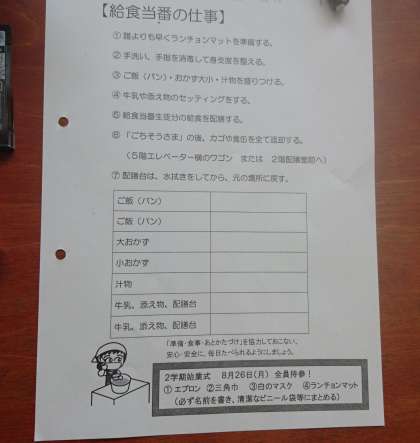 【給食当番の仕事】
① 誰よりも早くランチョンマットを準備する。
② 手洗い、手指を消毒して身支度を整える。
③ ご飯(パン)・おかず大小・汁物を盛りつける。
④ 牛乳や添え物のセッティングをする。
⑤ 給食当番生徒分の給食を配膳する。
⑥ 「ごちそうさま」の後、カゴや食缶を全て返却する。
(5階エレベーター横のワゴン または 2階配膳室前へ)
⑦ 配膳台は、水拭きをしてから、元の場所に戻す。
ご飯(パン)
ご飯(パン)
大おかず
小おかず
汁物
牛乳、添え物、配膳台
牛乳、添え物、配膳台
「準備・食事・あとかたづけ」を協力しておこない、
安心・安全に、毎日たべられるようにしましょう。
2学期始業式 8月26日(月) 全員持参!
① エプロン ②三角巾 ③白のマスク ④ランチョンマット
(必ず名前を書き、清潔なビニール袋等にまとめる)